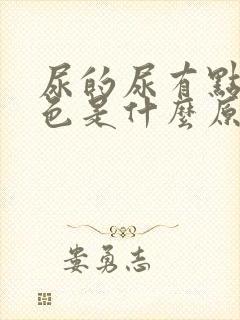 尿的尿有點
色是什麼原
娄勇志